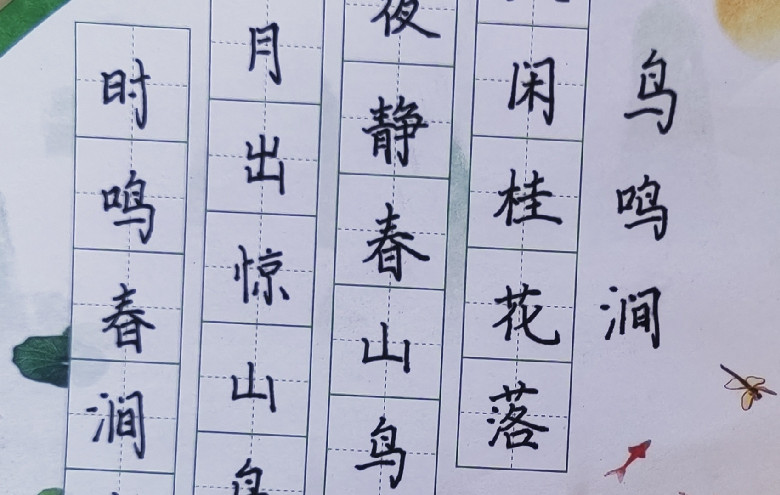 鸟鸣涧
闲桂花落
夜静春山鸟
月出惊山
时鸣春涧